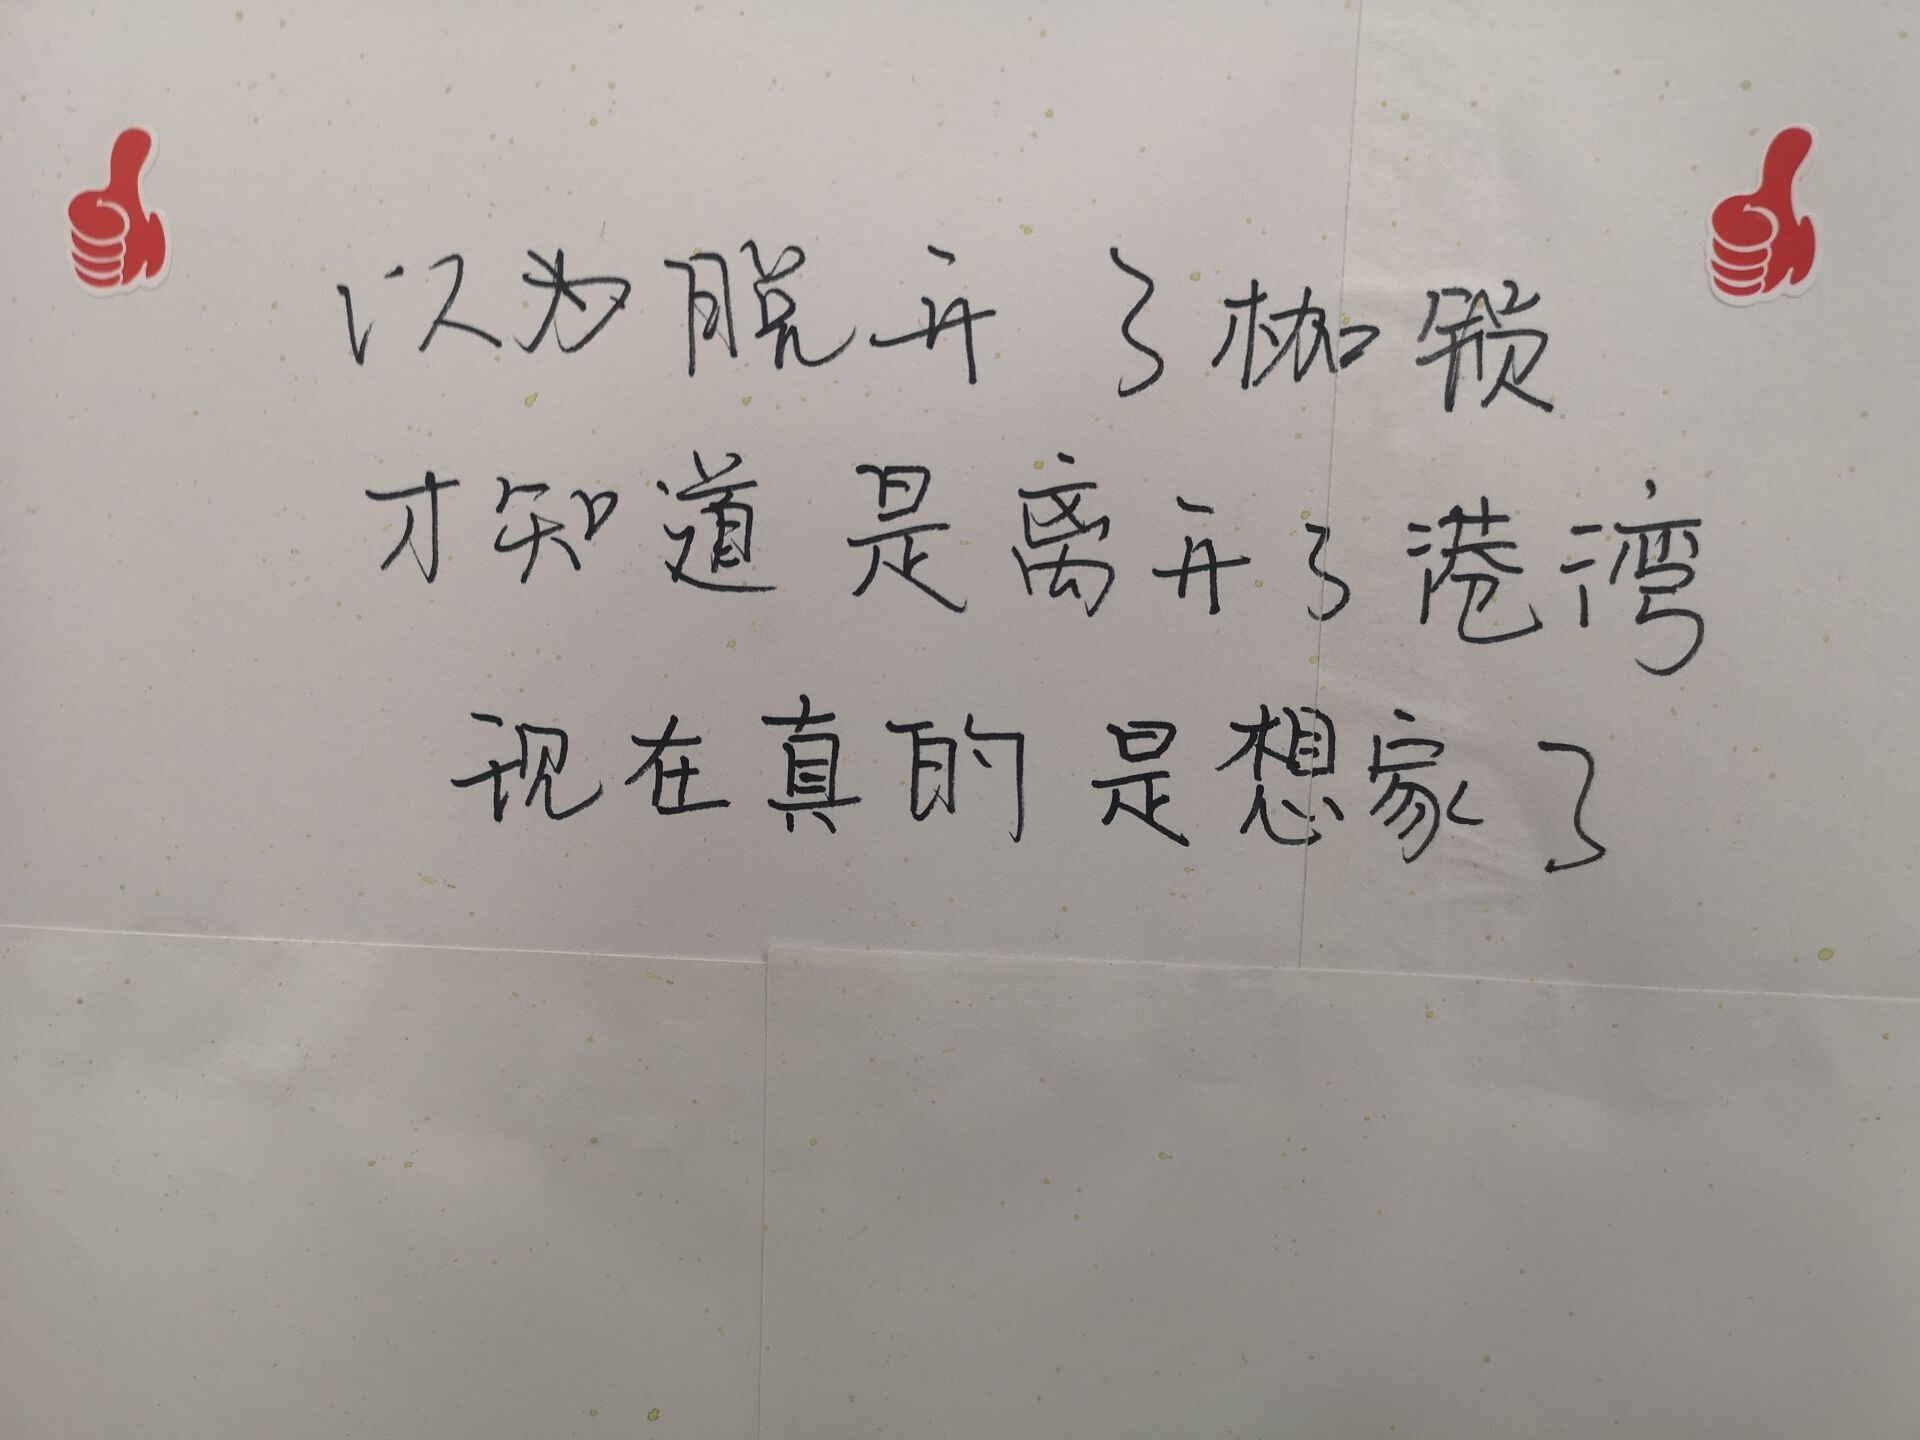 以为脱开了枷锁
才知道是离开了港湾
现在真的是想家了